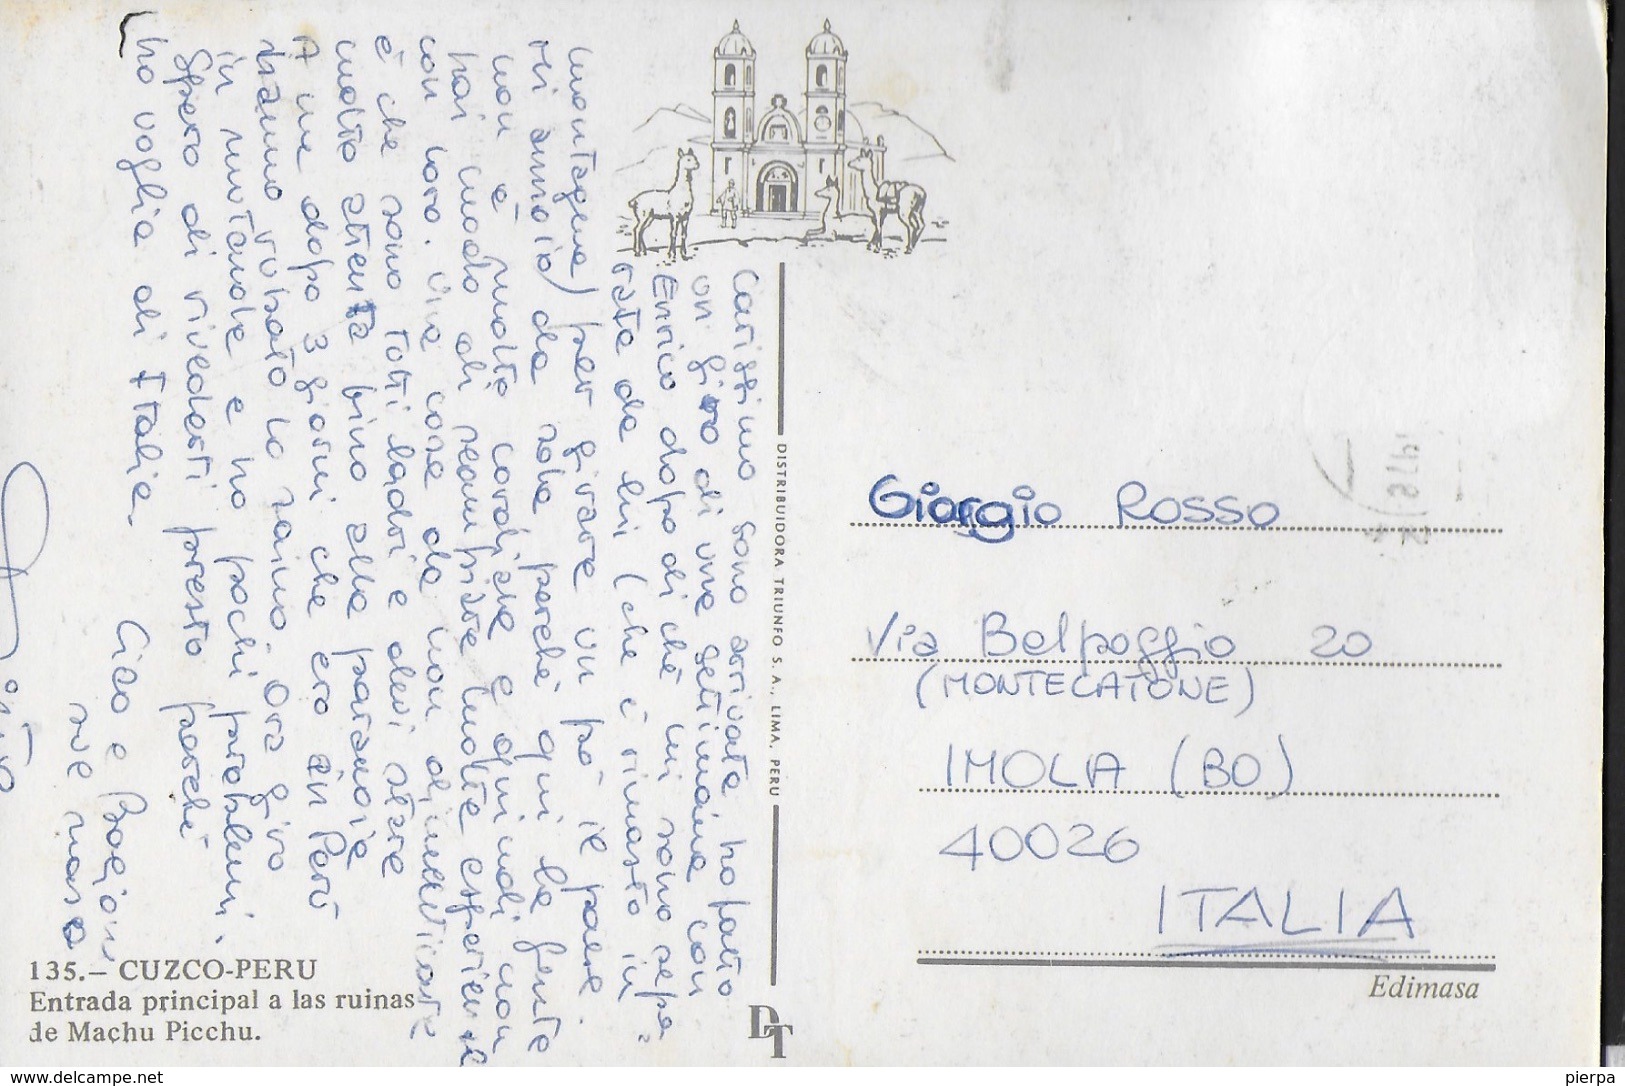 Carissimo sono arrivata ho fatto
un giro di una settimana con
Enrico dopo di chè mi sono sepa=
rata da lui (che è rimasto in
montagna) per girare un pò il paese.
Mi annoio da sola perchè qui la gente
non è molto cordiale e quindi non
hai modo di scambiare molte esperienze
con loro. Una cosa da non dimenticare
è che sono tutti ladri e devi stare
molto attenta fino alla paranoia
A me dopo 3 giorni che ero in Perù
hanno rubato lo zaino. Ora giro
in mutande e ho pochi problemi.
Spero di rivederti presto perchè
ho voglia di Italia.
Ciao e Bacioni
sue
135.— CUZCO-PERU
Entrada principal a las ruinas
de Machu Picchu.
DISTRIBUIDORA TRIUNFO S. A., LIMA, PERU
DT
Giorgio Rosso
Via Belpoggio 20
(MONTECATONE)
IMOLA (BO)
40026
ITALIA
Edimasa
www.delcampe.net
pierpa